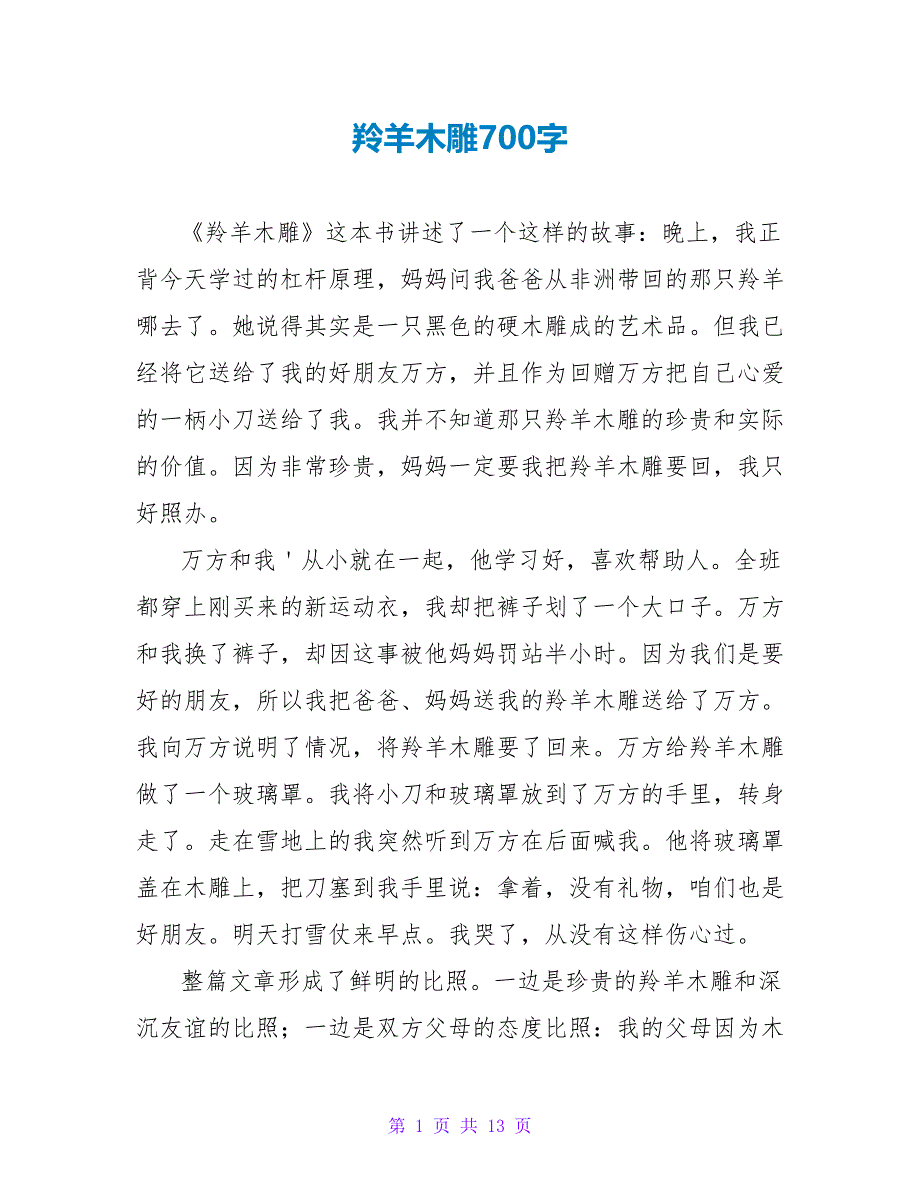 羚羊木雕700字
《羚羊木雕》这本书讲述了一个这样的故事：晚上，我正
背今天学过的杠杆原理，妈妈问我爸爸从非洲带回的那只羚羊
哪去了。她说得其实是一只黑色的硬木雕成的艺术品。但我已
经将它送给了我的好朋友万方，并且作为回赠万方把自己心爱
的一柄小刀送给了我。我并不知道那只羚羊木雕的珍贵和实际
的价值。因为非常珍贵，妈妈一定要我把羚羊木雕要回，我只
好照办。
万方和我＇从小就在一起，他学习好，喜欢帮助人。全班
都穿上刚买来的新运动衣，我却把裤子划了一个大口子。万方
和我换了裤子，却因这事被他妈妈罚站半小时。因为我们是要
好的朋友，所以我把爸爸、妈妈送我的羚羊木雕送给了万方。
我向万方说明了情况，将羚羊木雕要了回来。万方给羚羊木雕
做了一个玻璃罩。我将小刀和玻璃罩放到了万方的手里，转身
走了。走在雪地上的我突然听到万方在后面喊我。他将玻璃罩
盖在木雕上，把刀塞到我手里说：拿着，没有礼物，咱们也是
好朋友。明天打雪仗来早点。我哭了，从没有这样伤心过。
整篇文章形成了鲜明的比照。一边是珍贵的羚羊木雕和深
沉友谊的比照；一边是双方父母的态度比照：我的父母因为木
第 1 页 共 13 页